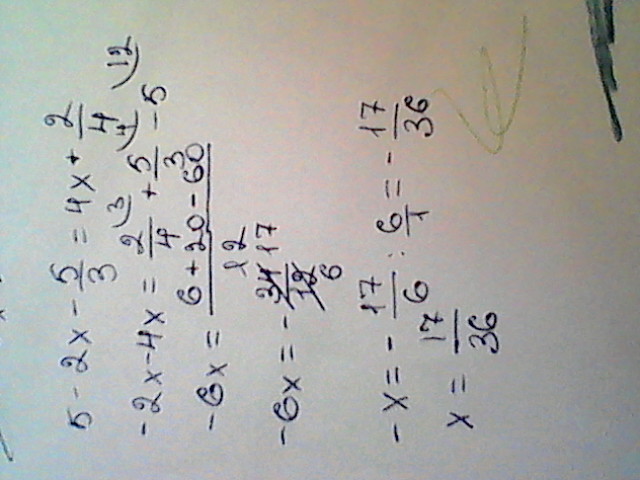 5 - 2x - 5/3 = 4x + 2/4 \12
-2x - 4x = 2/4 \3 + 5/3 \4 - 5
-6x = (6 + 20 - 60)/12
-6x = - 34/12 17/6
-x = - 17/6 : 6/1 = - 17/36
x = 17/36